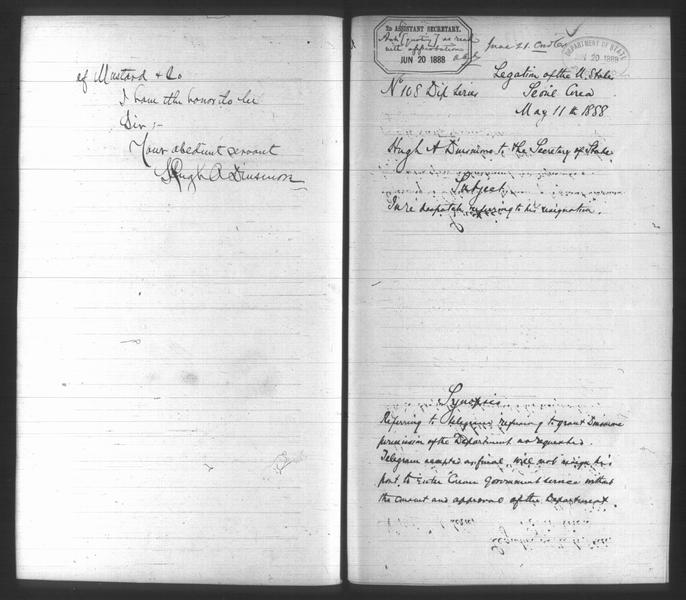 of Mustard & Co
I have the honor to be
Sir;-
Your obedient servant
Hugh A Dinsmore
2D ASSISTANT SECRETARY.
Ack (quoting) as read
with approbation
JUN 20 1888
June 21
DEPARTMENT OF STATE
20 1888
No 108 Dip Series
Legation of the U. States
Seoul Corea
May 11th 1888
Hugh A Dinsmore to the Secretary of State.
Subject
In re despatch referring to his resignation.
Synopsis
Referring to telegram refusing to grant Dinsmore
permission of the Department as requested.
Telegram accepted as final, will not resign his
post to enter Corean Government service without
the consent and approval of the Department.